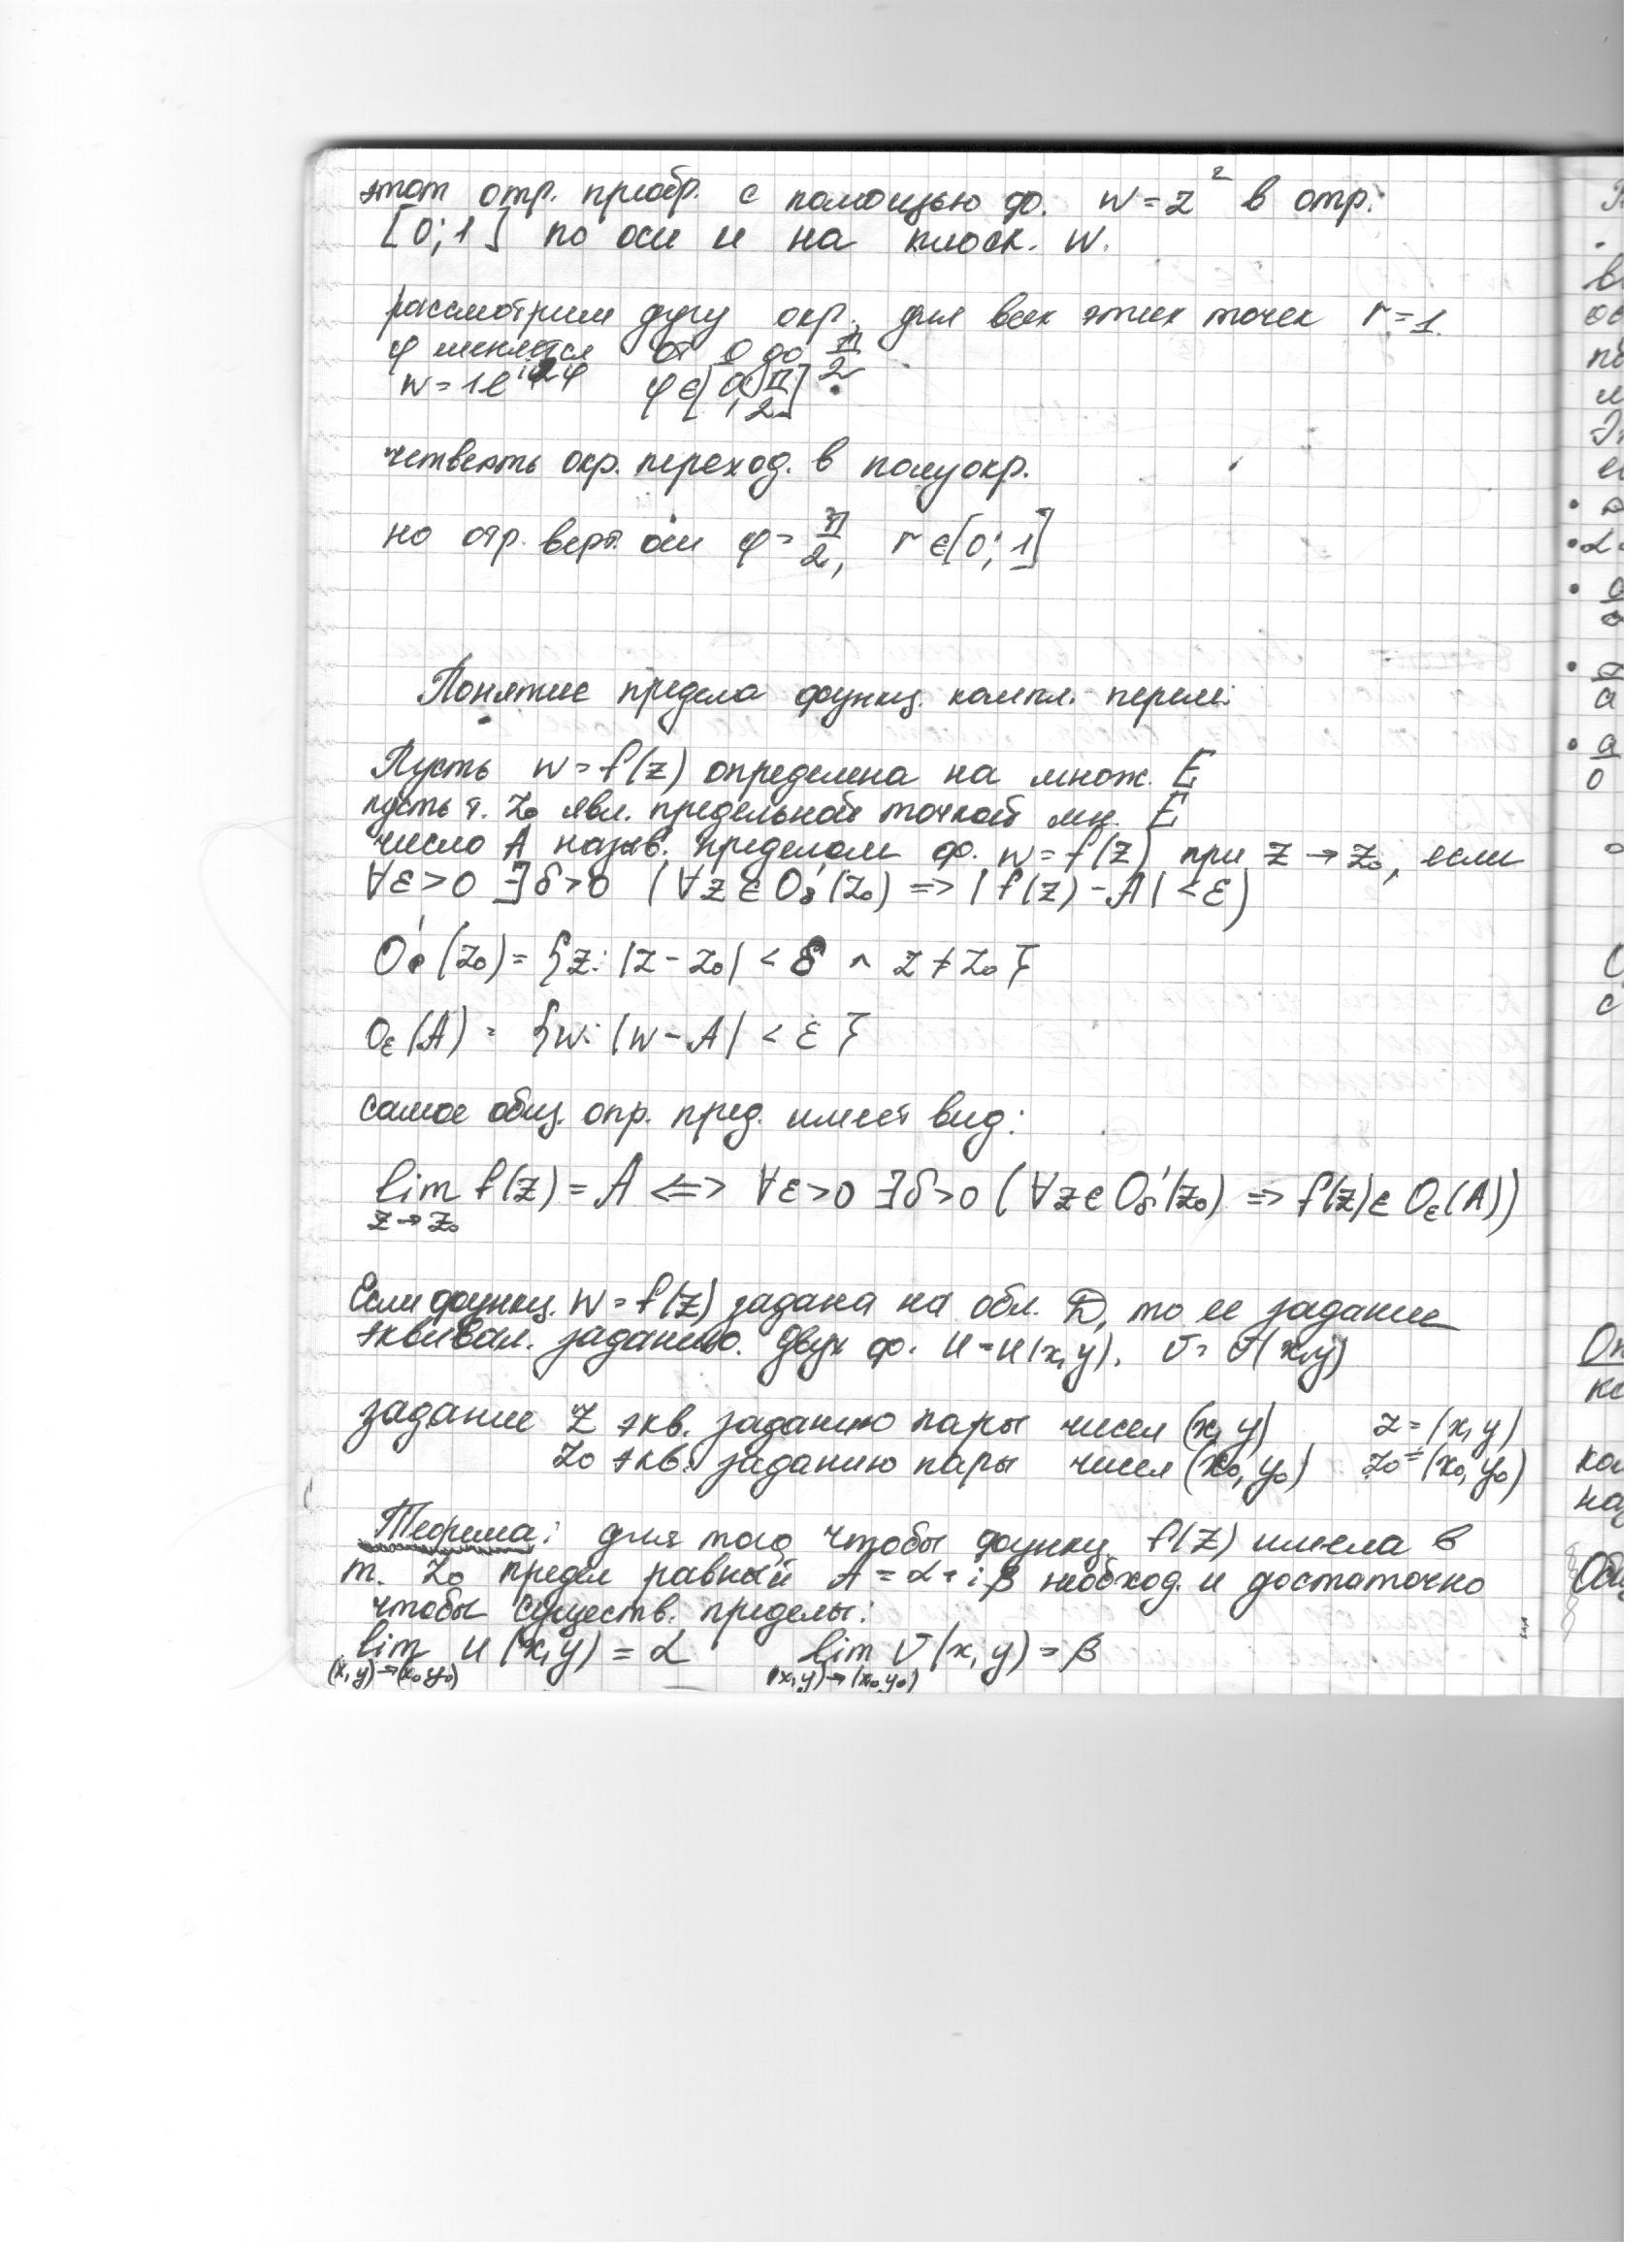 этот отр. преобр. с помощью ф. w = z² в отр.
[0; 1] по оси u на плоск. w.
рассмотрим дугу окр., для всех этих точек r = 1.
φ меняется от 0 до π/2
w = 1e^{i2φ} φ ∈ [0; π/2]
четверть окр. переход. в полуокр.
но отр. верт. оси φ = π/2, r ∈ [0; 1]
Понятие предела функц. компл. перем.
Пусть w = f(z) определена на множ. E
пусть т. z₀ явл. предельной точкой мн. E
число A назыв. пределом ф. w = f(z) при z → z₀, если
∀ε > 0 ∃δ > 0 (∀z ∈ O'δ(z₀) => |f(z) - A| < ε)
O'δ(z₀) = {z: |z - z₀| < δ ∧ z ≠ z₀}
Oε(A) = {w: |w - A| < ε}
самое общ. опр. пред. имеет вид:
lim f(z) = A <=> ∀ε > 0 ∃δ > 0 (∀z ∈ Oδ'(z₀) => f(z) ∈ Oε(A))
z → z₀
Если функц. w = f(z) задана на обл. D, то ее задание
эквивал. заданию. двух ф. u = u(x, y), v = v(x, y)
задание z экв. заданию пары чисел (x, y) z = (x, y)
z₀ экв. заданию пары чисел (x₀, y₀) z₀ = (x₀, y₀)
Теорема: для того чтобы функц. f(z) имела в
т. z₀ предел равный A = α + iβ необход. и достаточно
чтобы существ. пределы:
lim u(x, y) = α lim v(x, y) = β
(x, y) → (x₀, y₀) (x, y) → (x₀, y₀)